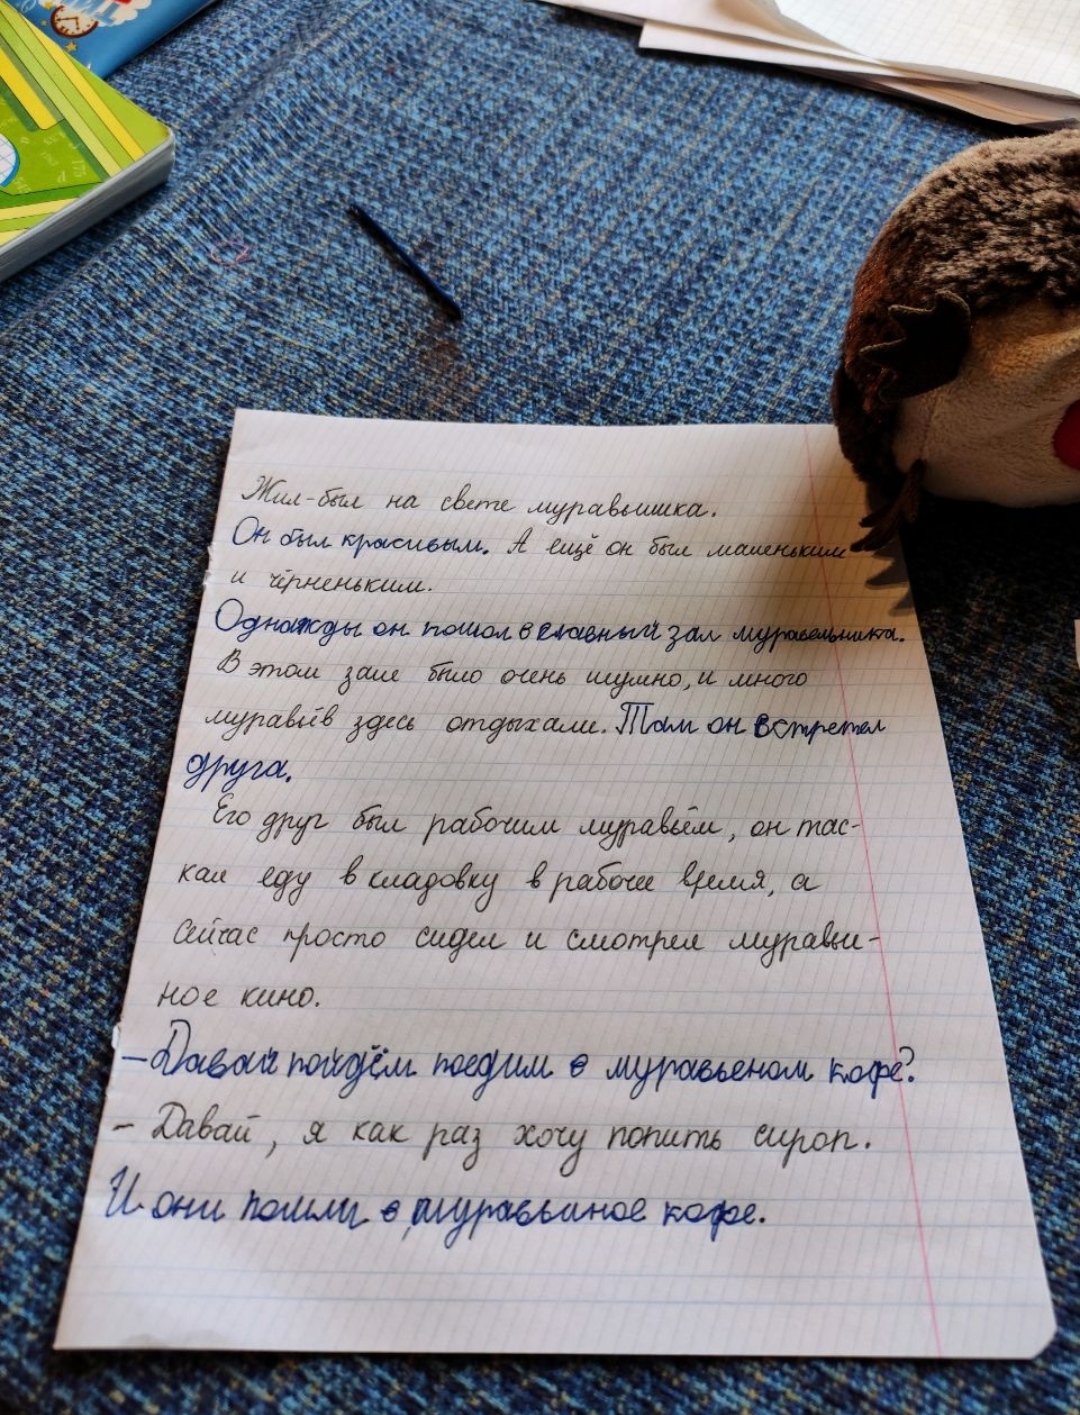 Жил-был на свете муравьишка.
Он был красивым. А ещё он был маленьким
и чёрненьким.
Однажды он пошол в главный зал муравельника.
В этом зале было очень шумно, и много
муравьёв здесь отдыхали. Там он встретел
друга.
Его друг был рабочим муравьём, он тас-
кал еду в кладовку в рабочее время, а
сейчас просто сидел и смотрел муравьи-
ное кино.
– Давай пойдём поедим в муравьеном кофе?
– Давай, я как раз хочу попить сироп.
И они пошли в муравьиное кофе.